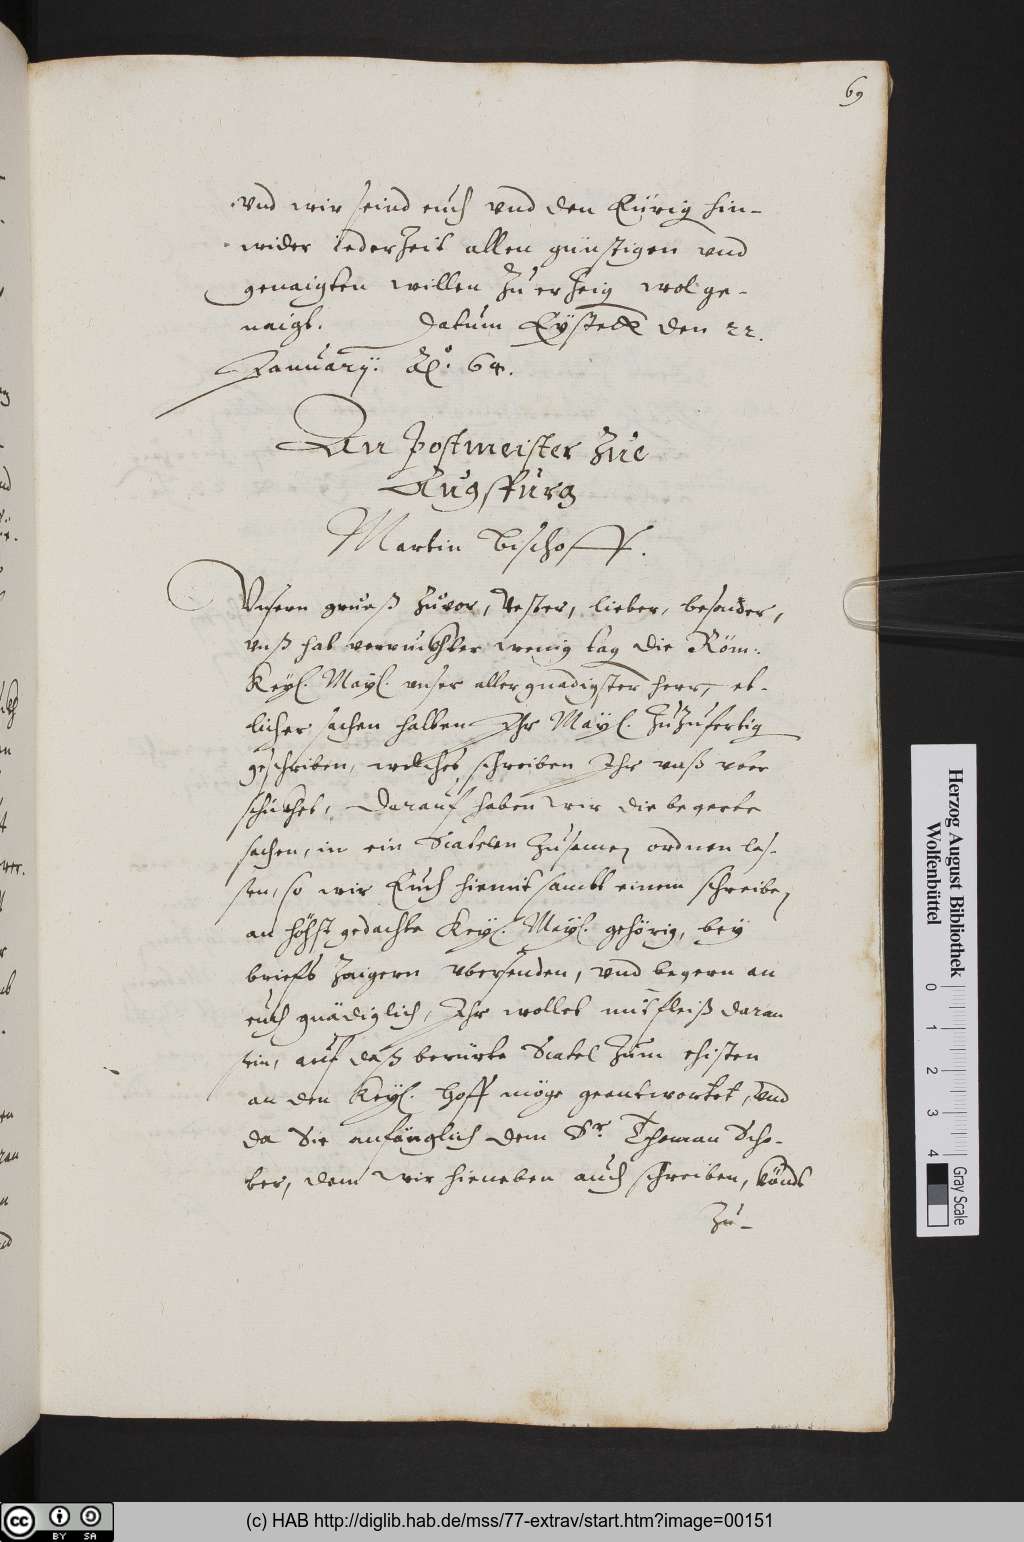 69
vnd wir seind euch vnd den Eürig hin-
wider iederZeit allen günstigen vnd
genaigten willen Zu erZeig wol ge-
naigt. Datum Eystett den 22.
January: Ao. 64.
An Postmeister Zue
Augspurg
Martin Bischoff.
Vnsern grueß Zuvor, Vester, lieber, besonder,
vnß hat verruckhter wenig tag die Röm:
Keyl. Mayl. vnser allergnadigster herr, et-
licher sachen halben Ihr Mayl. ZuZufertig
geschriben, welches schreiben Ihr vnß vber
schickhet, Darauf haben wir die begerte
sachen, in ein Scatelen Zusamen ordnen las-
sen, so wir Euch hiemit sambt einem schreiben
an höchstgedachte Keyl. Mayl. gehörig, bey
briefs Zaigern vbersenden, vnd begern an
euch gnädiglich, Ihr wollet mit fleiß daran
sein, auf daß berürte Scatel Zum ehisten
an den Keyl. hoff möge geantwortet, vnd
da Sie anfänglich dem Sr. Thoman Scho-
ber, dem wir hieneben auch schreiben,
Zu-
Herzog August Bibliothek
Wolfenbüttel
0 1 2 3 4
Gray Scale
cc BY SA
(c) HAB http://diglib.hab.de/mss/77-extrav/start.htm?image=00151